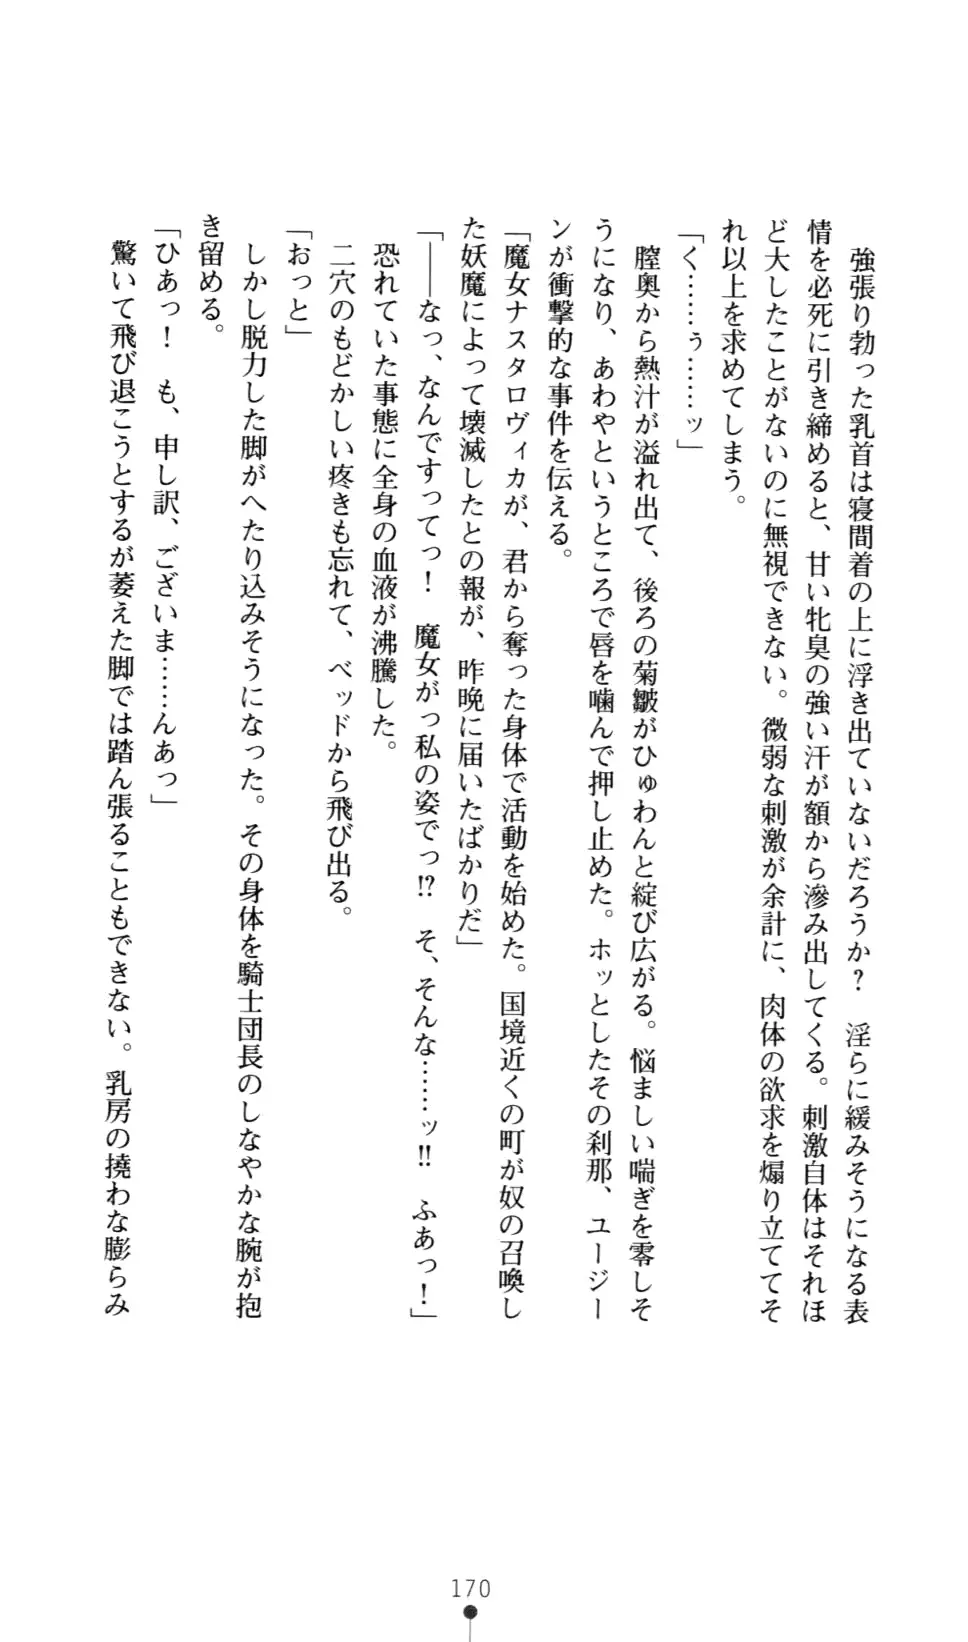 強張り勃った乳首は寝間着の上に浮き出ていないだろうか？　淫らに緩みそうになる表
情を必死に引き締めると、甘い牝臭の強い汗が額から滲み出してくる。刺激自体はそれほ
ど大したことがないのに無視できない。微弱な刺激が余計に、肉体の欲求を煽り立ててそ
れ以上を求めてしまう。
「く……ぅ……ッ」
膣奥から熱汁が溢れ出て、後ろの菊皺がひゅわんと綻び広がる。悩ましい喘ぎを零しそ
うになり、あわやというところで唇を噛んで押し止めた。ホッとしたその刹那、ユージー
ンが衝撃的な事件を伝える。
「魔女ナスタロヴィカが、君から奪った身体で活動を始めた。国境近くの町が奴の召喚し
た妖魔によって壊滅したとの報が、昨晩に届いたばかりだ」
「――なっ、なんですってっ！　魔女がっ私の姿でっ!?　そ、そんな……ッ!!　ふあっ！」
恐れていた事態に全身の血液が沸騰した。
二穴のもどかしい疼きも忘れて、ベッドから飛び出る。
「おっと」
しかし脱力した脚がへたり込みそうになった。その身体を騎士団長のしなやかな腕が抱
き留める。
「ひあっ！　も、申し訳、ございま……んあっ」
驚いて飛び退こうとするが萎えた脚では踏ん張ることもできない。乳房の撓わな膨らみ
170